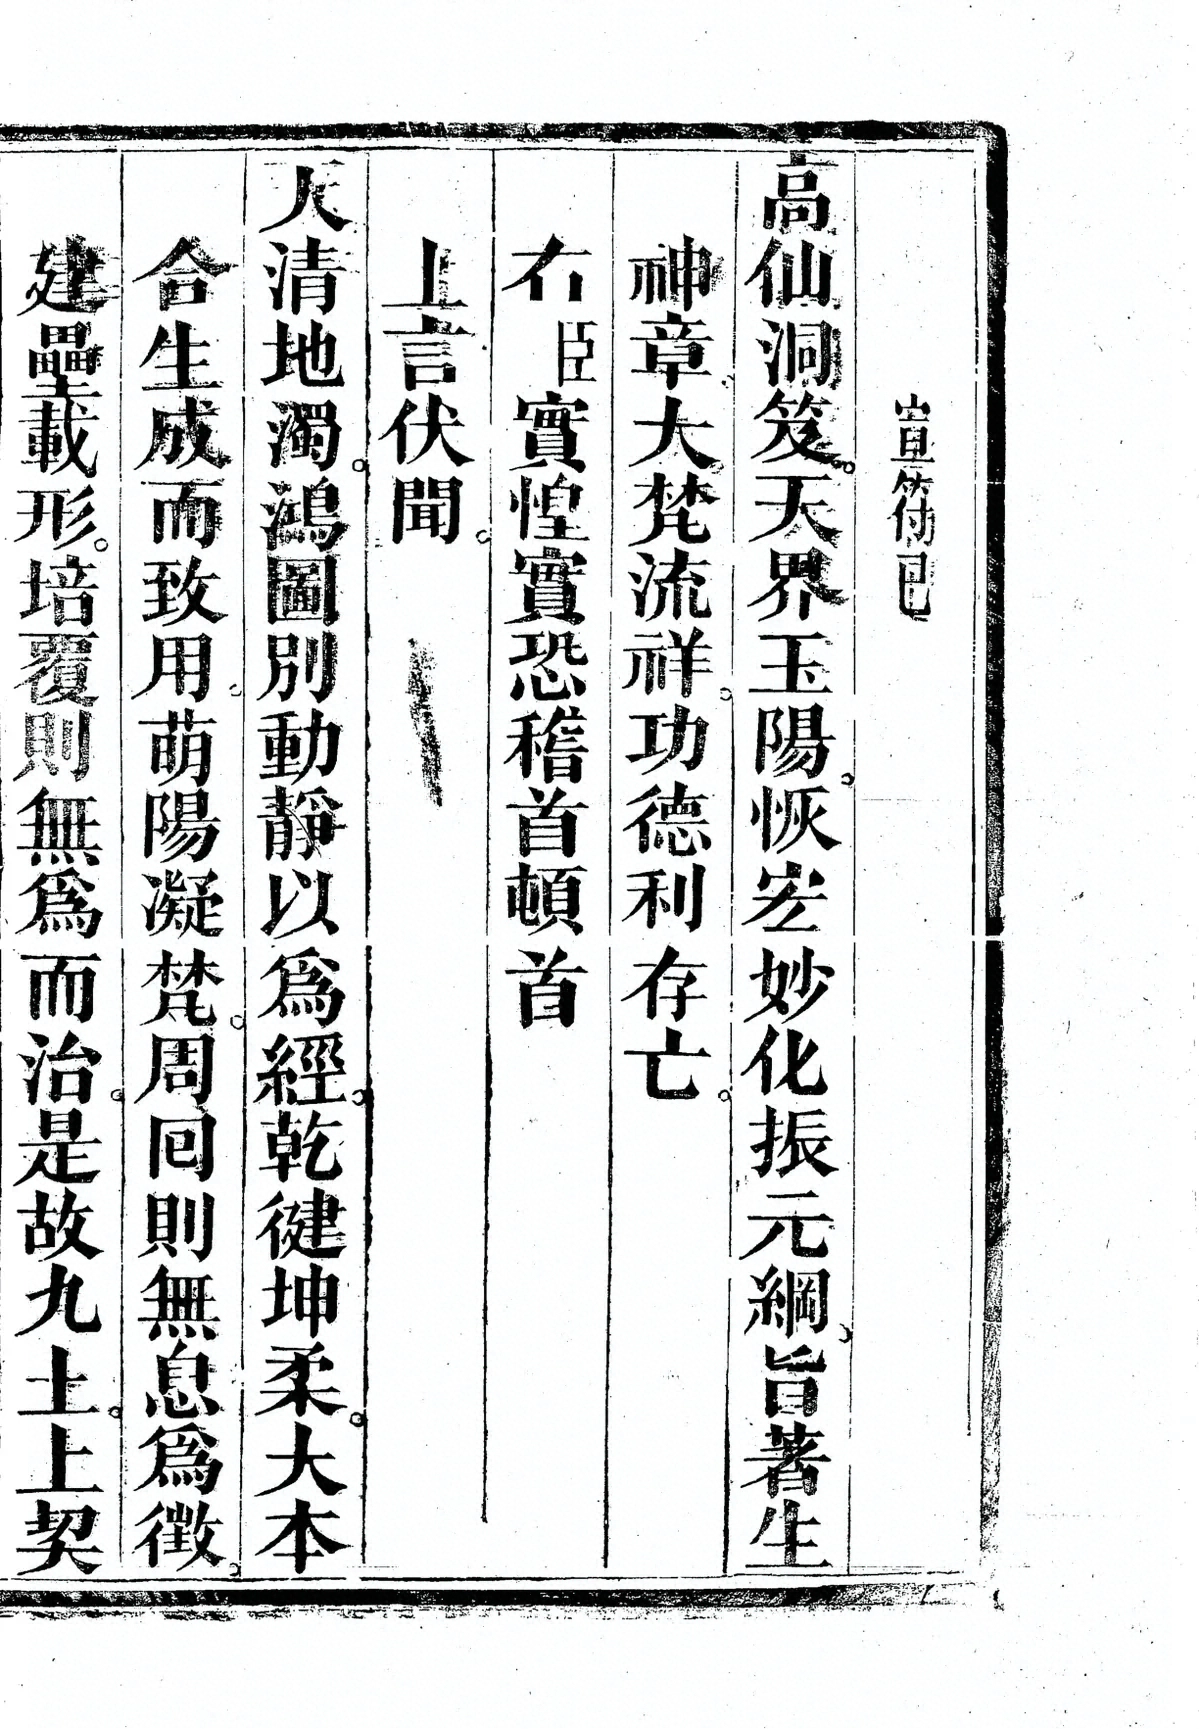 宣符已
高仙洞笈。天界玉陽。恢宏妙化振元綱。旨著生
神章。大梵流祥。功德利存亡。
右臣實惶實恐稽首頓首
上言伏聞。
天清地濁。鴻圖別動靜以爲經。乾健坤柔。大本
合生成而致用。萌陽凝梵。周回則無息爲徵。
建壘載形。培覆則無爲而治。是故九土。上契